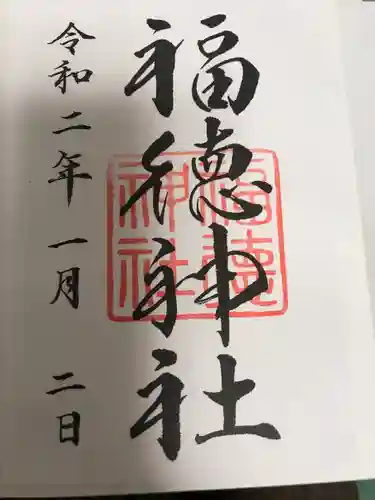 福徳神社
福徳神社
令和二年一月二日